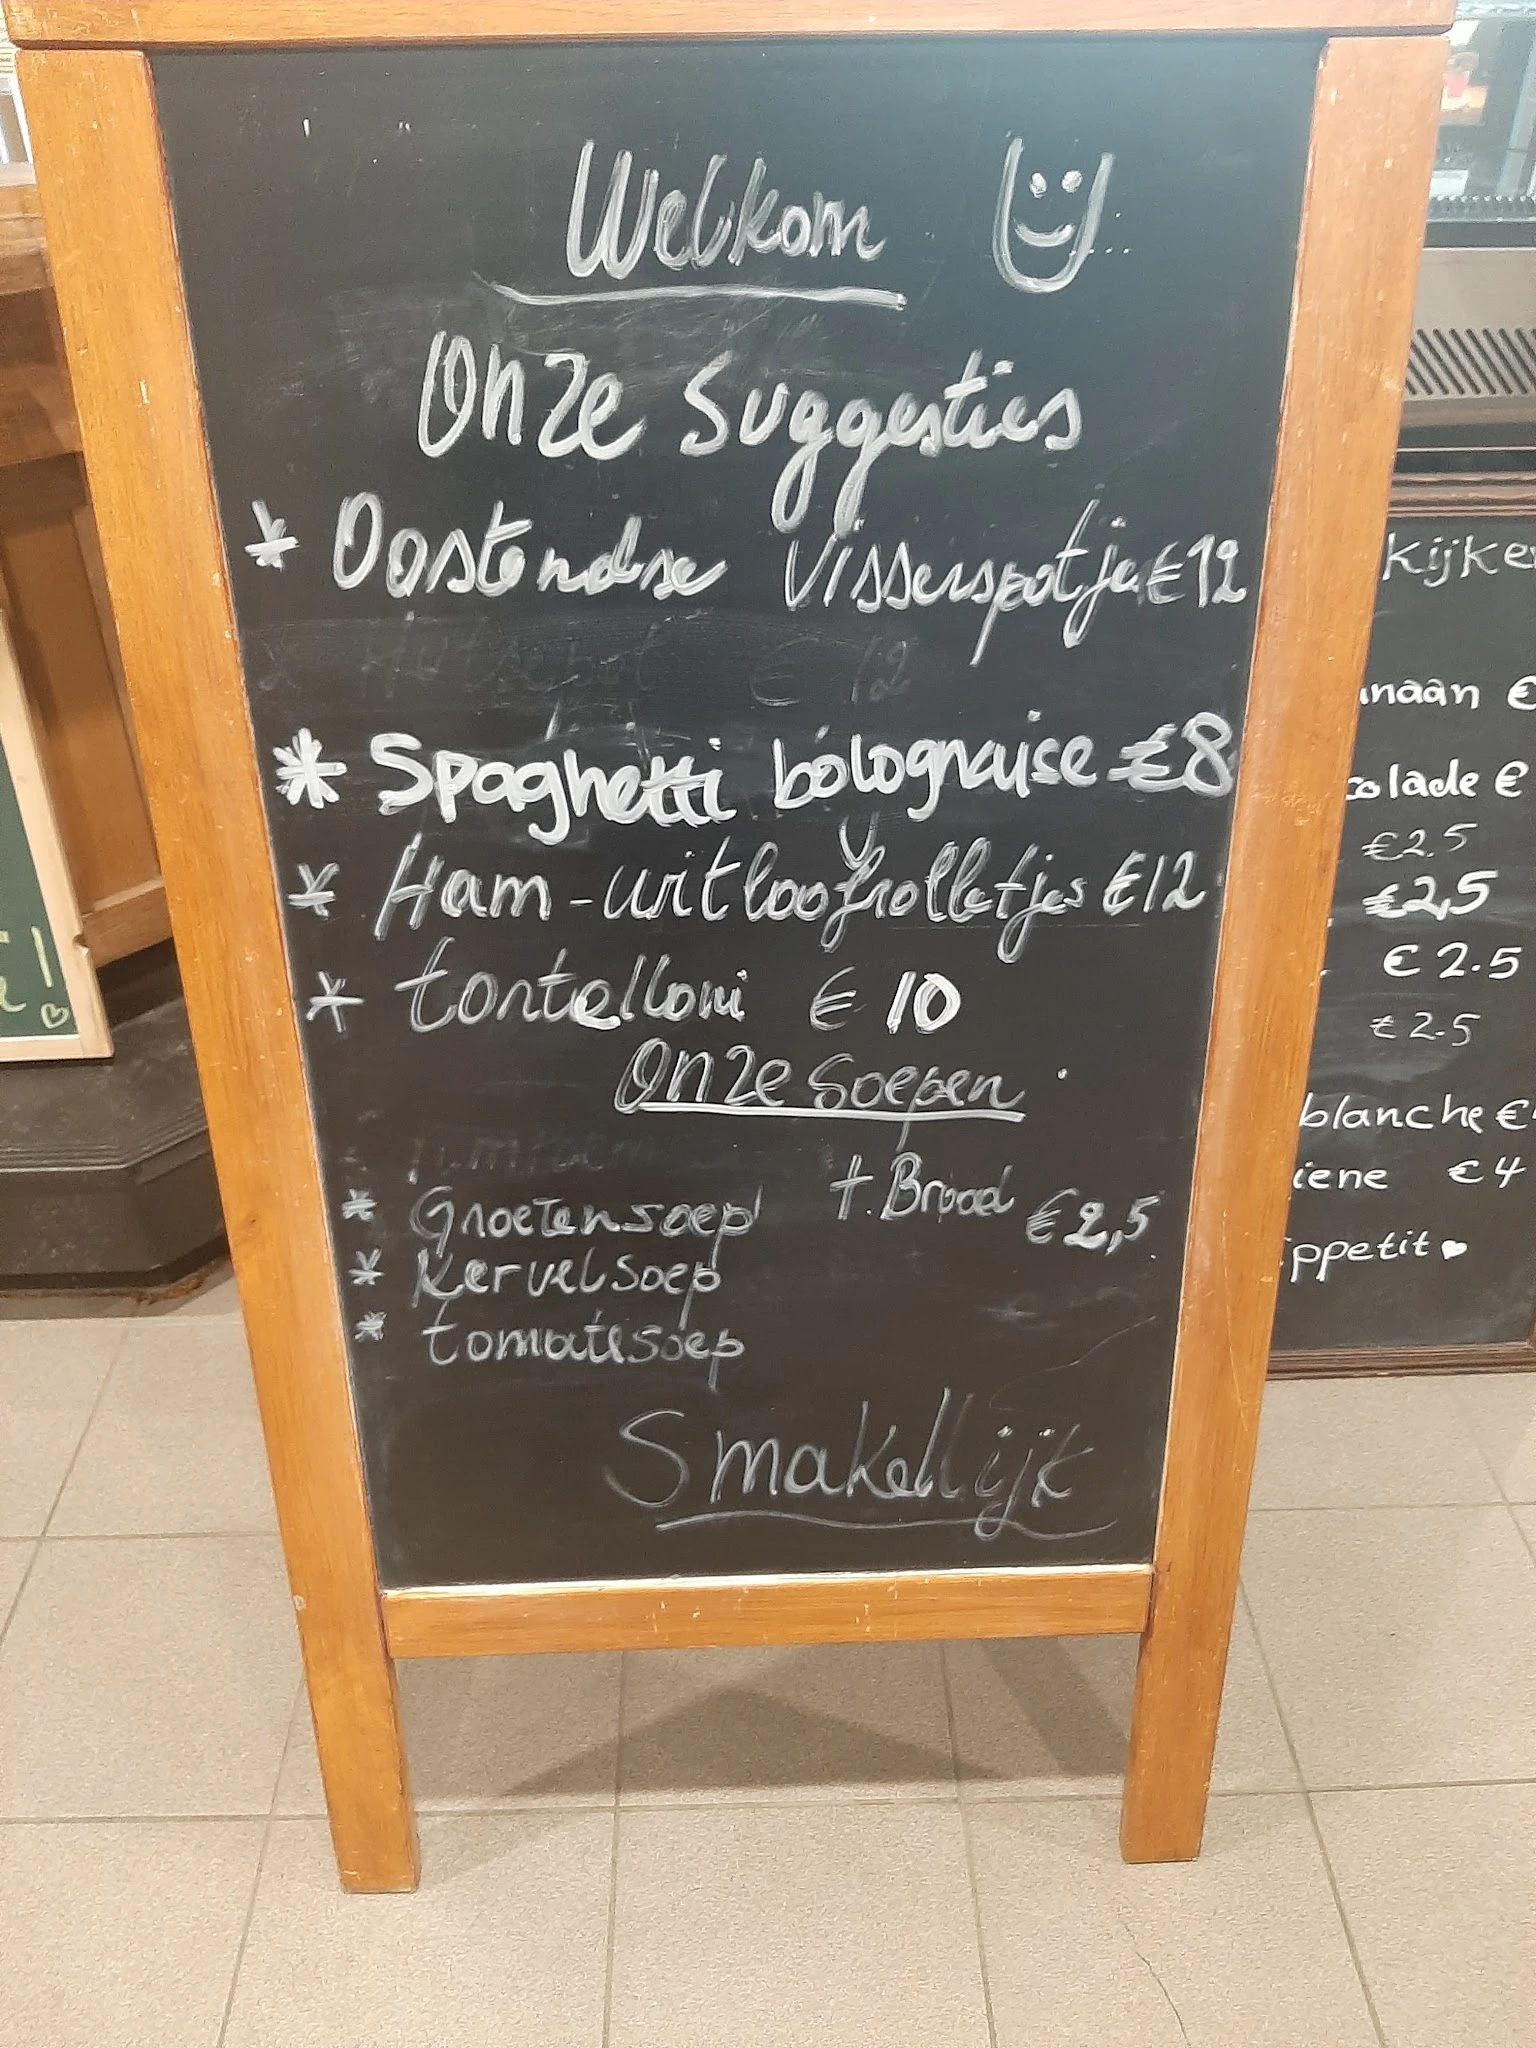 Welkom
Onze suggesties
* Oostendse Visserspotje €12
Hutsepot € 12
* Spaghetti bolognaise €8
* Ham-uitloofrolletjes €12
* tortelloni € 10
Onze Soepen
+ Brood
* Groetensoep €2,5
* Kervelsoep
* tomatesoep
Smakelijk
€2.5
€2,5
€2.5
€2.5
blanche €
€4